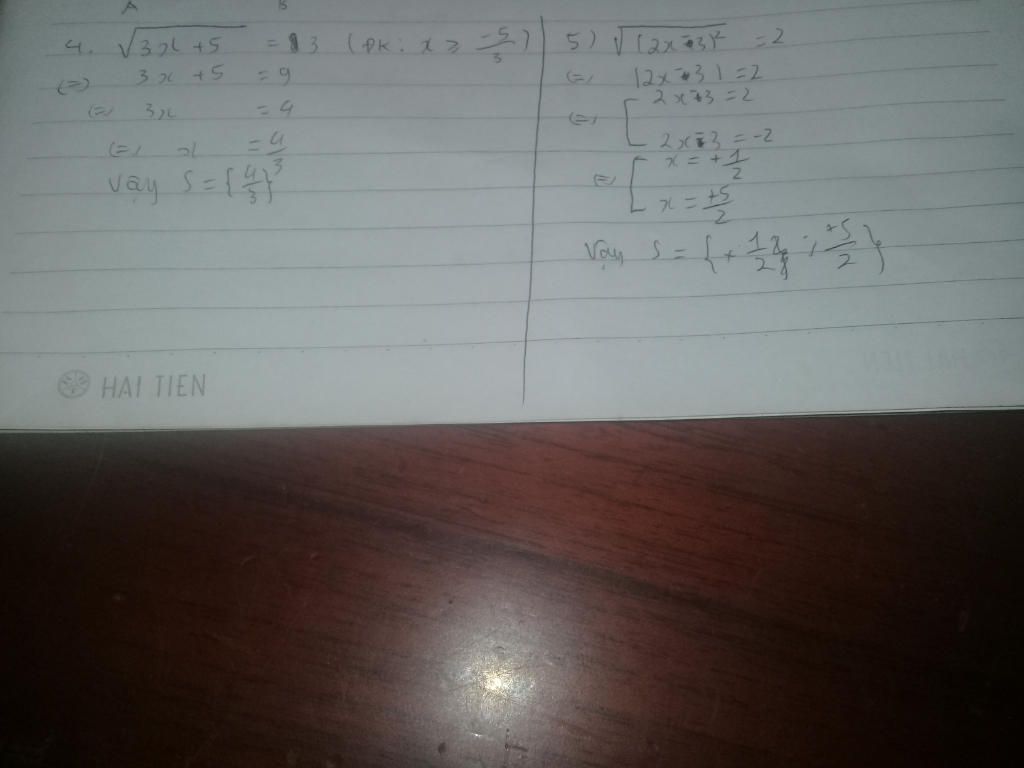 A B
4. √3x+5 = 3 (ĐK: x ≥ -5/3)
(=) 3x + 5 = 9
(=) 3x = 4
(=) x = 4/3
Vậy S = {4/3}
5) √(2x-3)² = 2
(=) |2x-3| = 2
(=) [ 2x-3 = 2
2x-3 = -2
(=) [ x = +1/2
x = +5/2
Vậy S = {+1/2 ; +5/2}
HAI TIEN